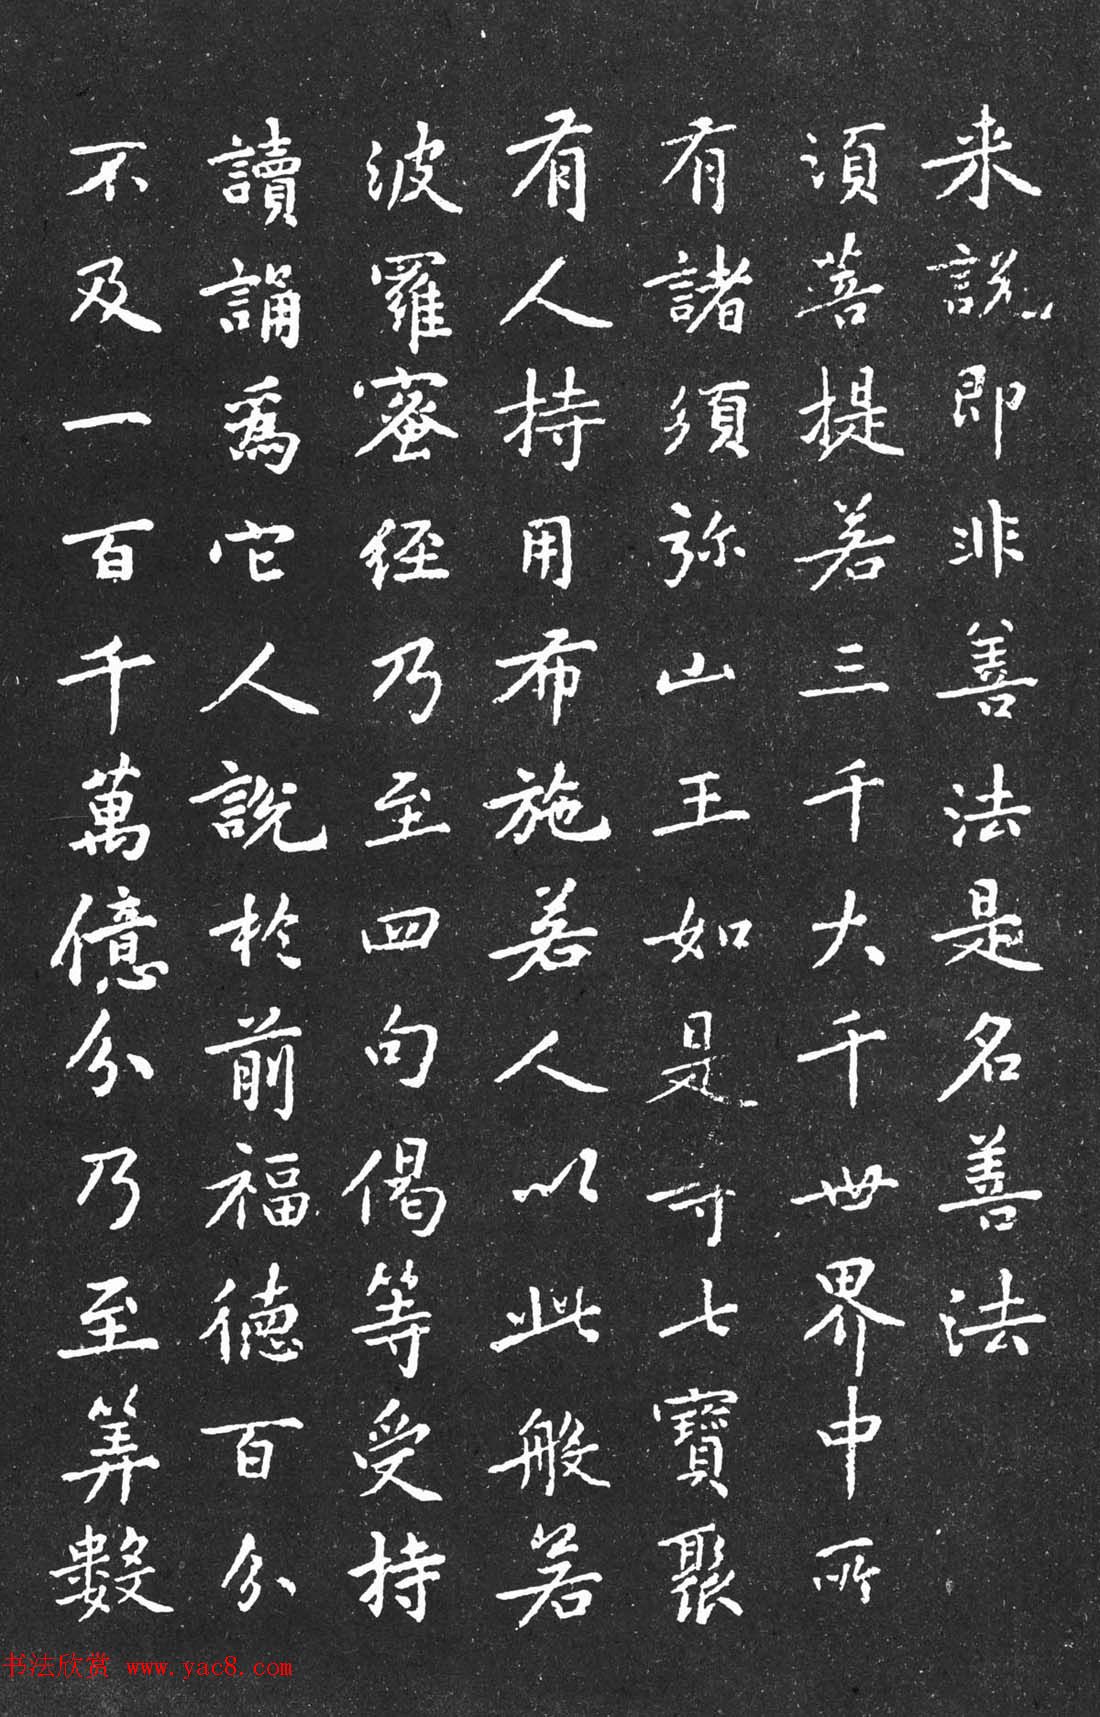 来說即非善法是名善法
須菩提若三千大千世界中所
有諸須弥山王如是等七寶聚
有人持用布施若人以此般若
波羅蜜經乃至四句偈等受持
讀誦爲它人說於前福德百分
不及一百千萬億分乃至筭數
书法欣赏 www.yac8.com